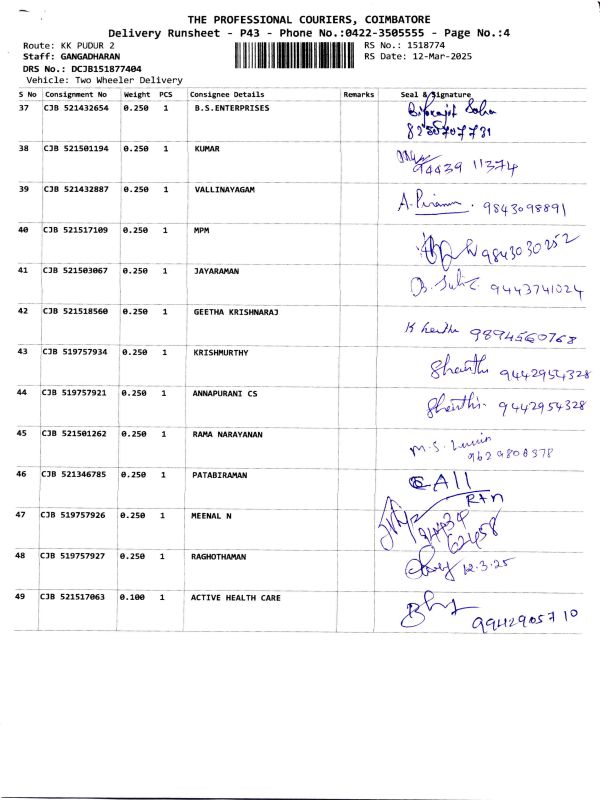 THE PROFESSIONAL COURIERS, COIMBATORE
Delivery Runsheet - P43 - Phone No.:0422-3505555 - Page No.:4
Route: KK PUDUR 2 RS No.: 1518774
Staff: GANGADHARAN RS Date: 12-Mar-2025
DRS No.: DCJB151877404
Vehicle: Two Wheeler Delivery
S No Consignment No Weight PCS Consignee Details Remarks Seal & Signature
37 CJB 521432654 0.250 1 B.S.ENTERPRISES
38 CJB 521501194 0.250 1 KUMAR 94439 11374
39 CJB 521432887 0.250 1 VALLINAYAGAM A. 9843098891
40 CJB 521517109 0.250 1 MPM 9843030252
41 CJB 521503067 0.250 1 JAYARAMAN 9443741024
42 CJB 521518560 0.250 1 GEETHA KRISHNARAJ K 9894560768
43 CJB 519757934 0.250 1 KRISHMURTHY Shanthi 9442954328
44 CJB 519757921 0.250 1 ANNAPURANI CS Shanthi. 9442954328
45 CJB 521501262 0.250 1 RAMA NARAYANAN M.S. 9629808378
46 CJB 521346785 0.250 1 PATABIRAMAN CAll
R+n
47 CJB 519757926 0.250 1 MEENAL N 94434
62458
48 CJB 519757927 0.250 1 RAGHOTHAMAN 12.3.25
49 CJB 521517063 0.100 1 ACTIVE HEALTH CARE 9942905710